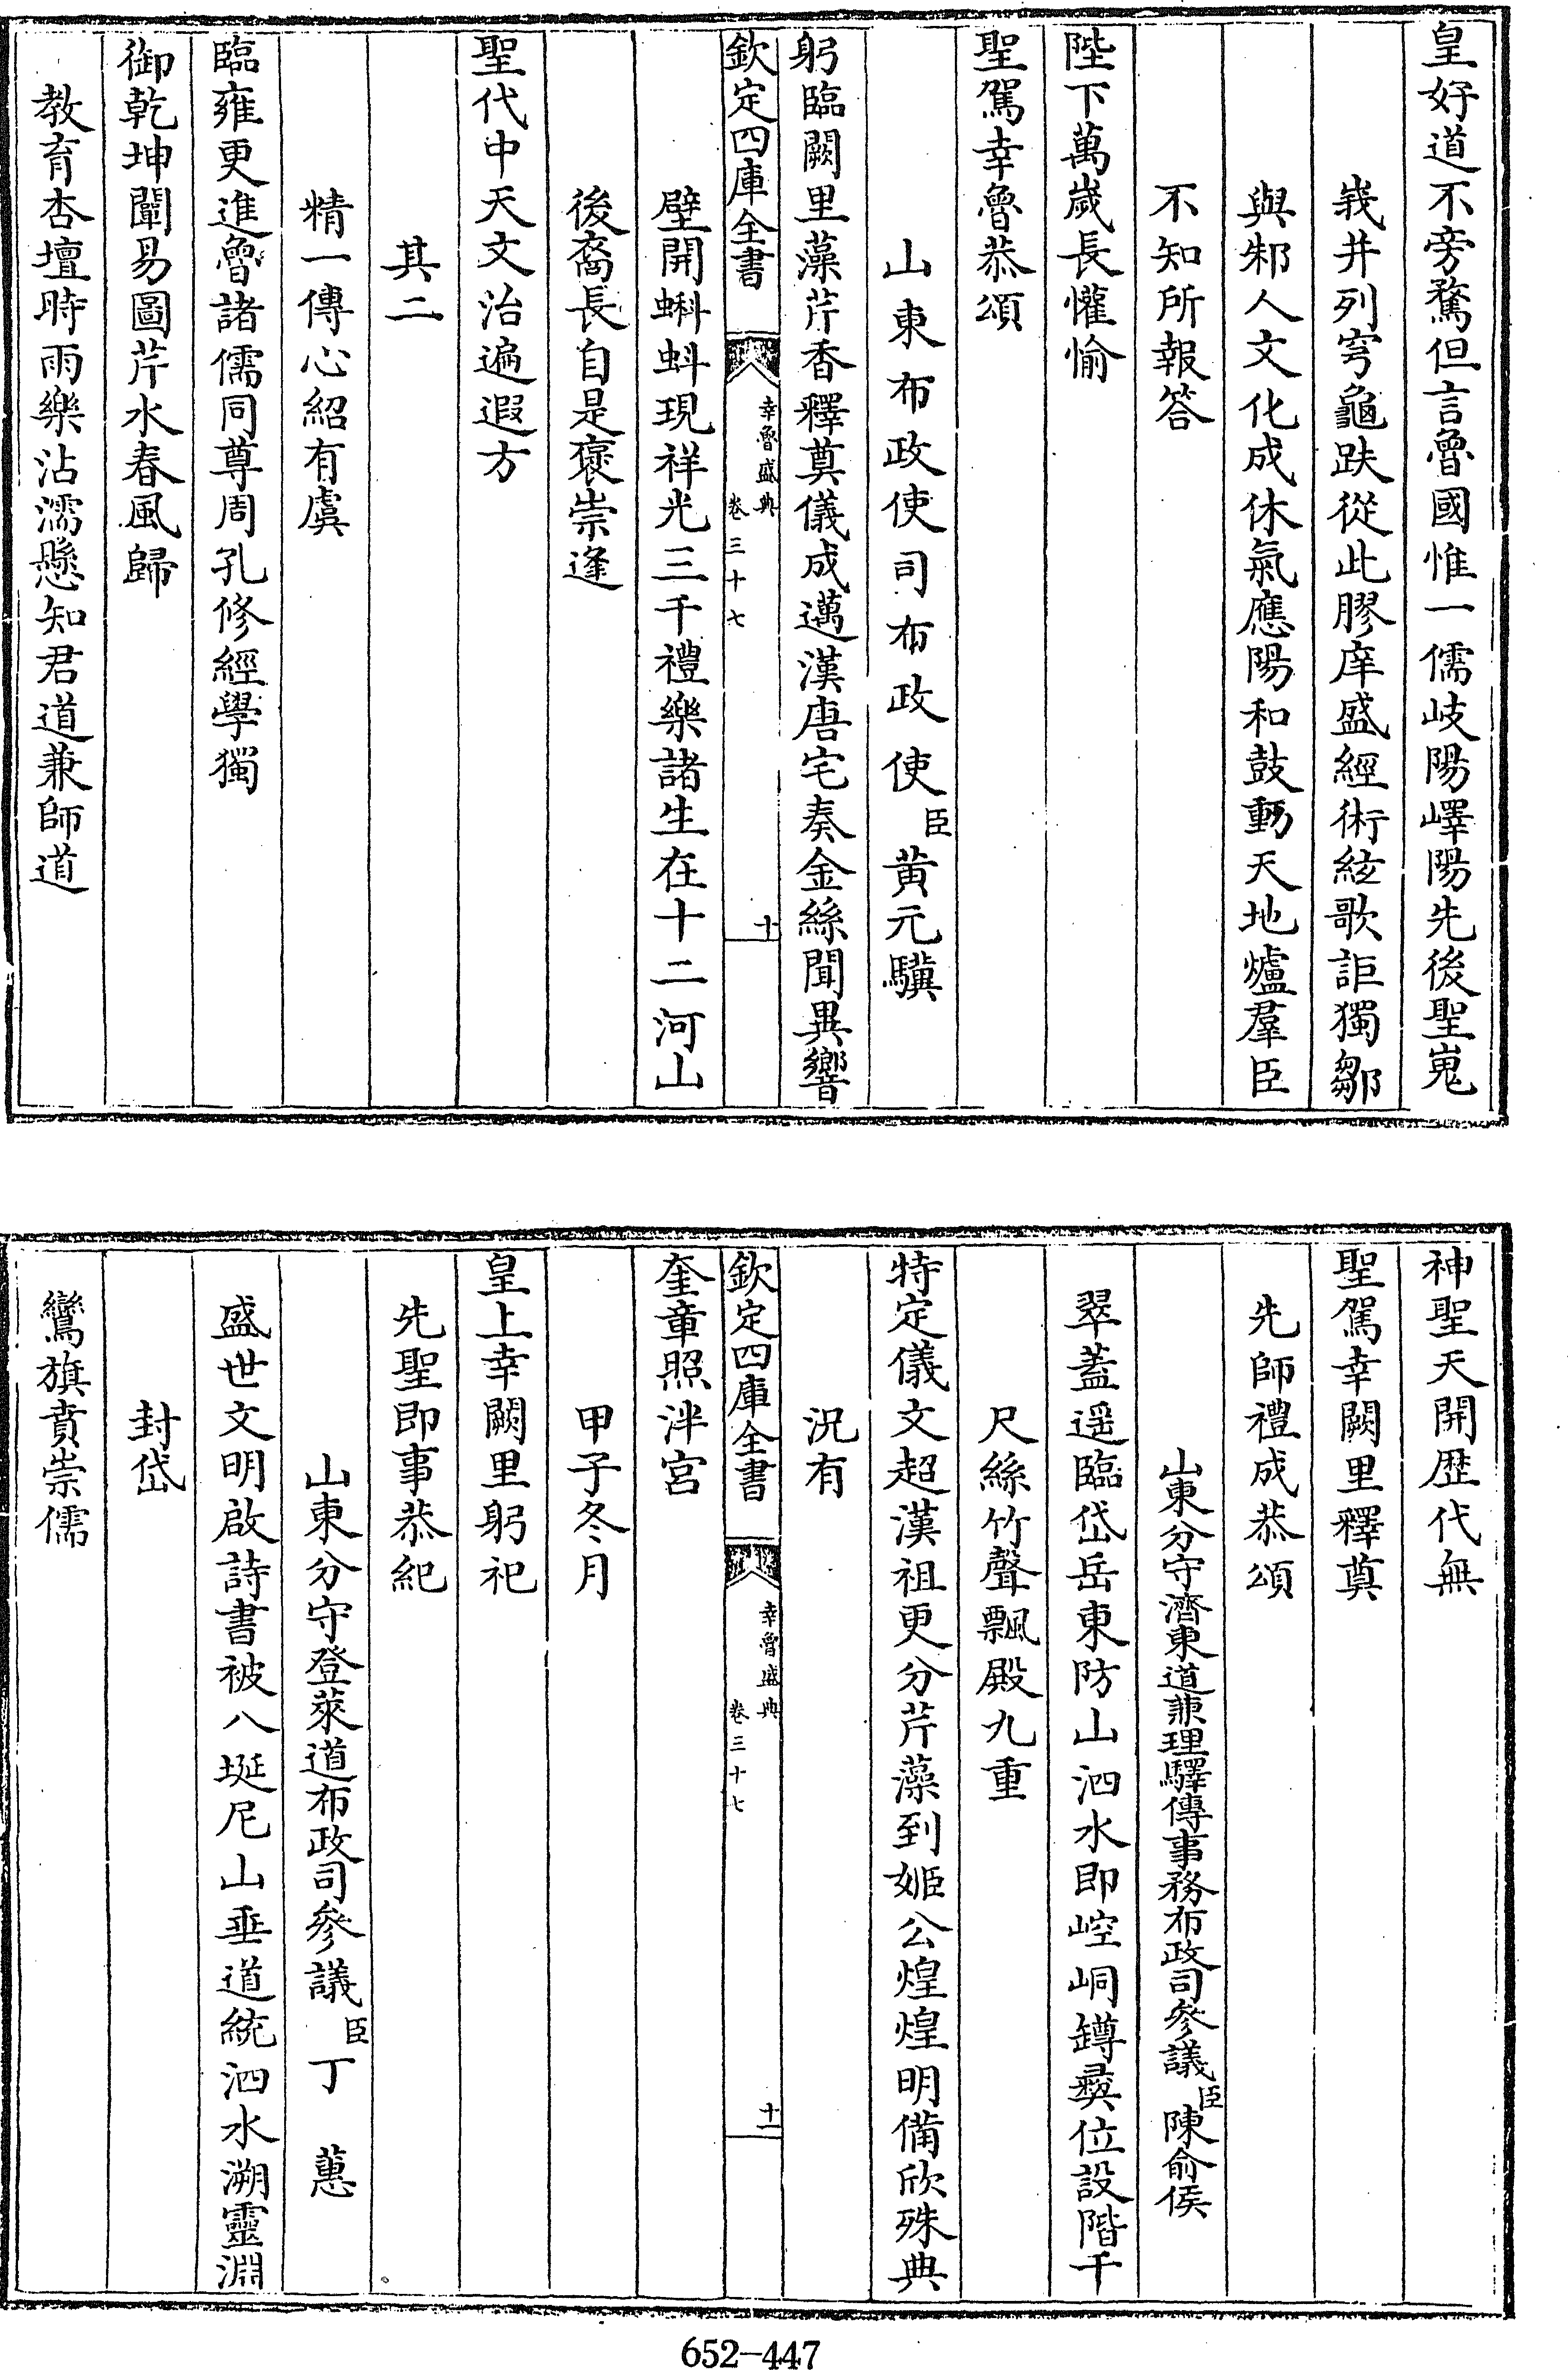 皇好道不旁騖但言魯國惟一儒岐陽嶧陽先後聖嵬
峩并列穹龜趺從此膠庠盛經術絃歌詎獨鄒
與邾人文化成休氣應陽和鼓動天地爐羣臣
不知所報答
陛下萬歲長懽愉
聖駕幸魯恭頌
山東布政使司布政使臣黄元驥
躬臨闕里藻芹香釋奠儀成邁漢唐宅奏金絲聞異響
欽定四庫全書
幸魯盛典
卷三十七
十
壁開蝌蚪現祥光三千禮樂諸生在十二河山
後裔長自是褒崇逢
聖代中天文治遍遐方
其二
精一傳心紹有虞
臨雍更進魯諸儒同尊周孔修經學獨
御乾坤闡易圖芹水春風歸
教育杏壇時雨樂沾濡懸知君道兼師道
神聖天開歴代無
聖駕幸闕里釋奠
先師禮成恭頌
山東分守濟東道兼理驛傳事務布政司參議臣陳俞侯
翠蓋遥臨岱岳東防山泗水即崆峒罇彝位設階千
尺絲竹聲飄殿九重
特定儀文超漢祖更分芹藻到姬公煌煌明備欣殊典
況有
欽定四庫全書
幸魯盛典
卷三十七
十一
奎章照泮宮
甲子冬月
皇上幸闕里躬祀
先聖即事恭紀
山東分守登萊道布政司參議臣丁蕙
盛世文明啟詩書被八埏尼山垂道統泗水溯靈淵
封岱
鸞旗賁崇儒
652-447